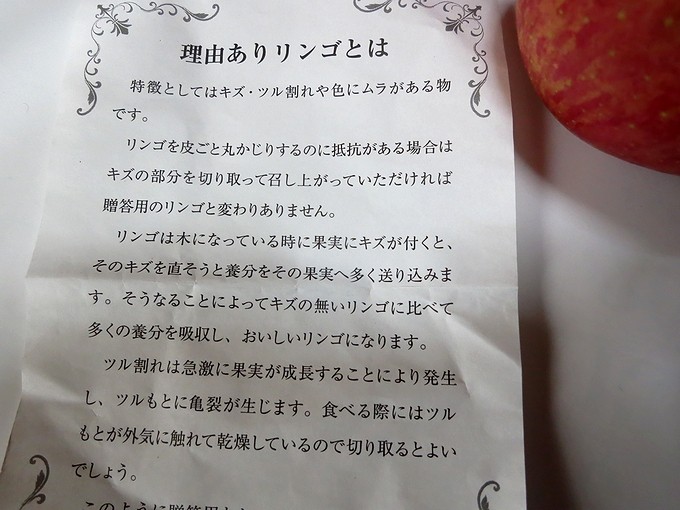 理由ありリンゴとは
特徴としてはキズ・ツル割れや色にムラがある物
です。
リンゴを皮ごと丸かじりするのに抵抗がある場合は
キズの部分を切り取って召し上がっていただければ
贈答用のリンゴと変わりありません。
リンゴは木になっている時に果実にキズが付くと、
そのキズを直そうと養分をその果実へ多く送り込みま
す。そうなることによってキズの無いリンゴに比べて
多くの養分を吸収し、おいしいリンゴになります。
ツル割れは急激に果実が成長することにより発生
し、ツルもとに亀裂が生じます。食べる際にはツル
もとが外気に触れて乾燥しているので切り取るとよい
でしょう。
このように贈答用